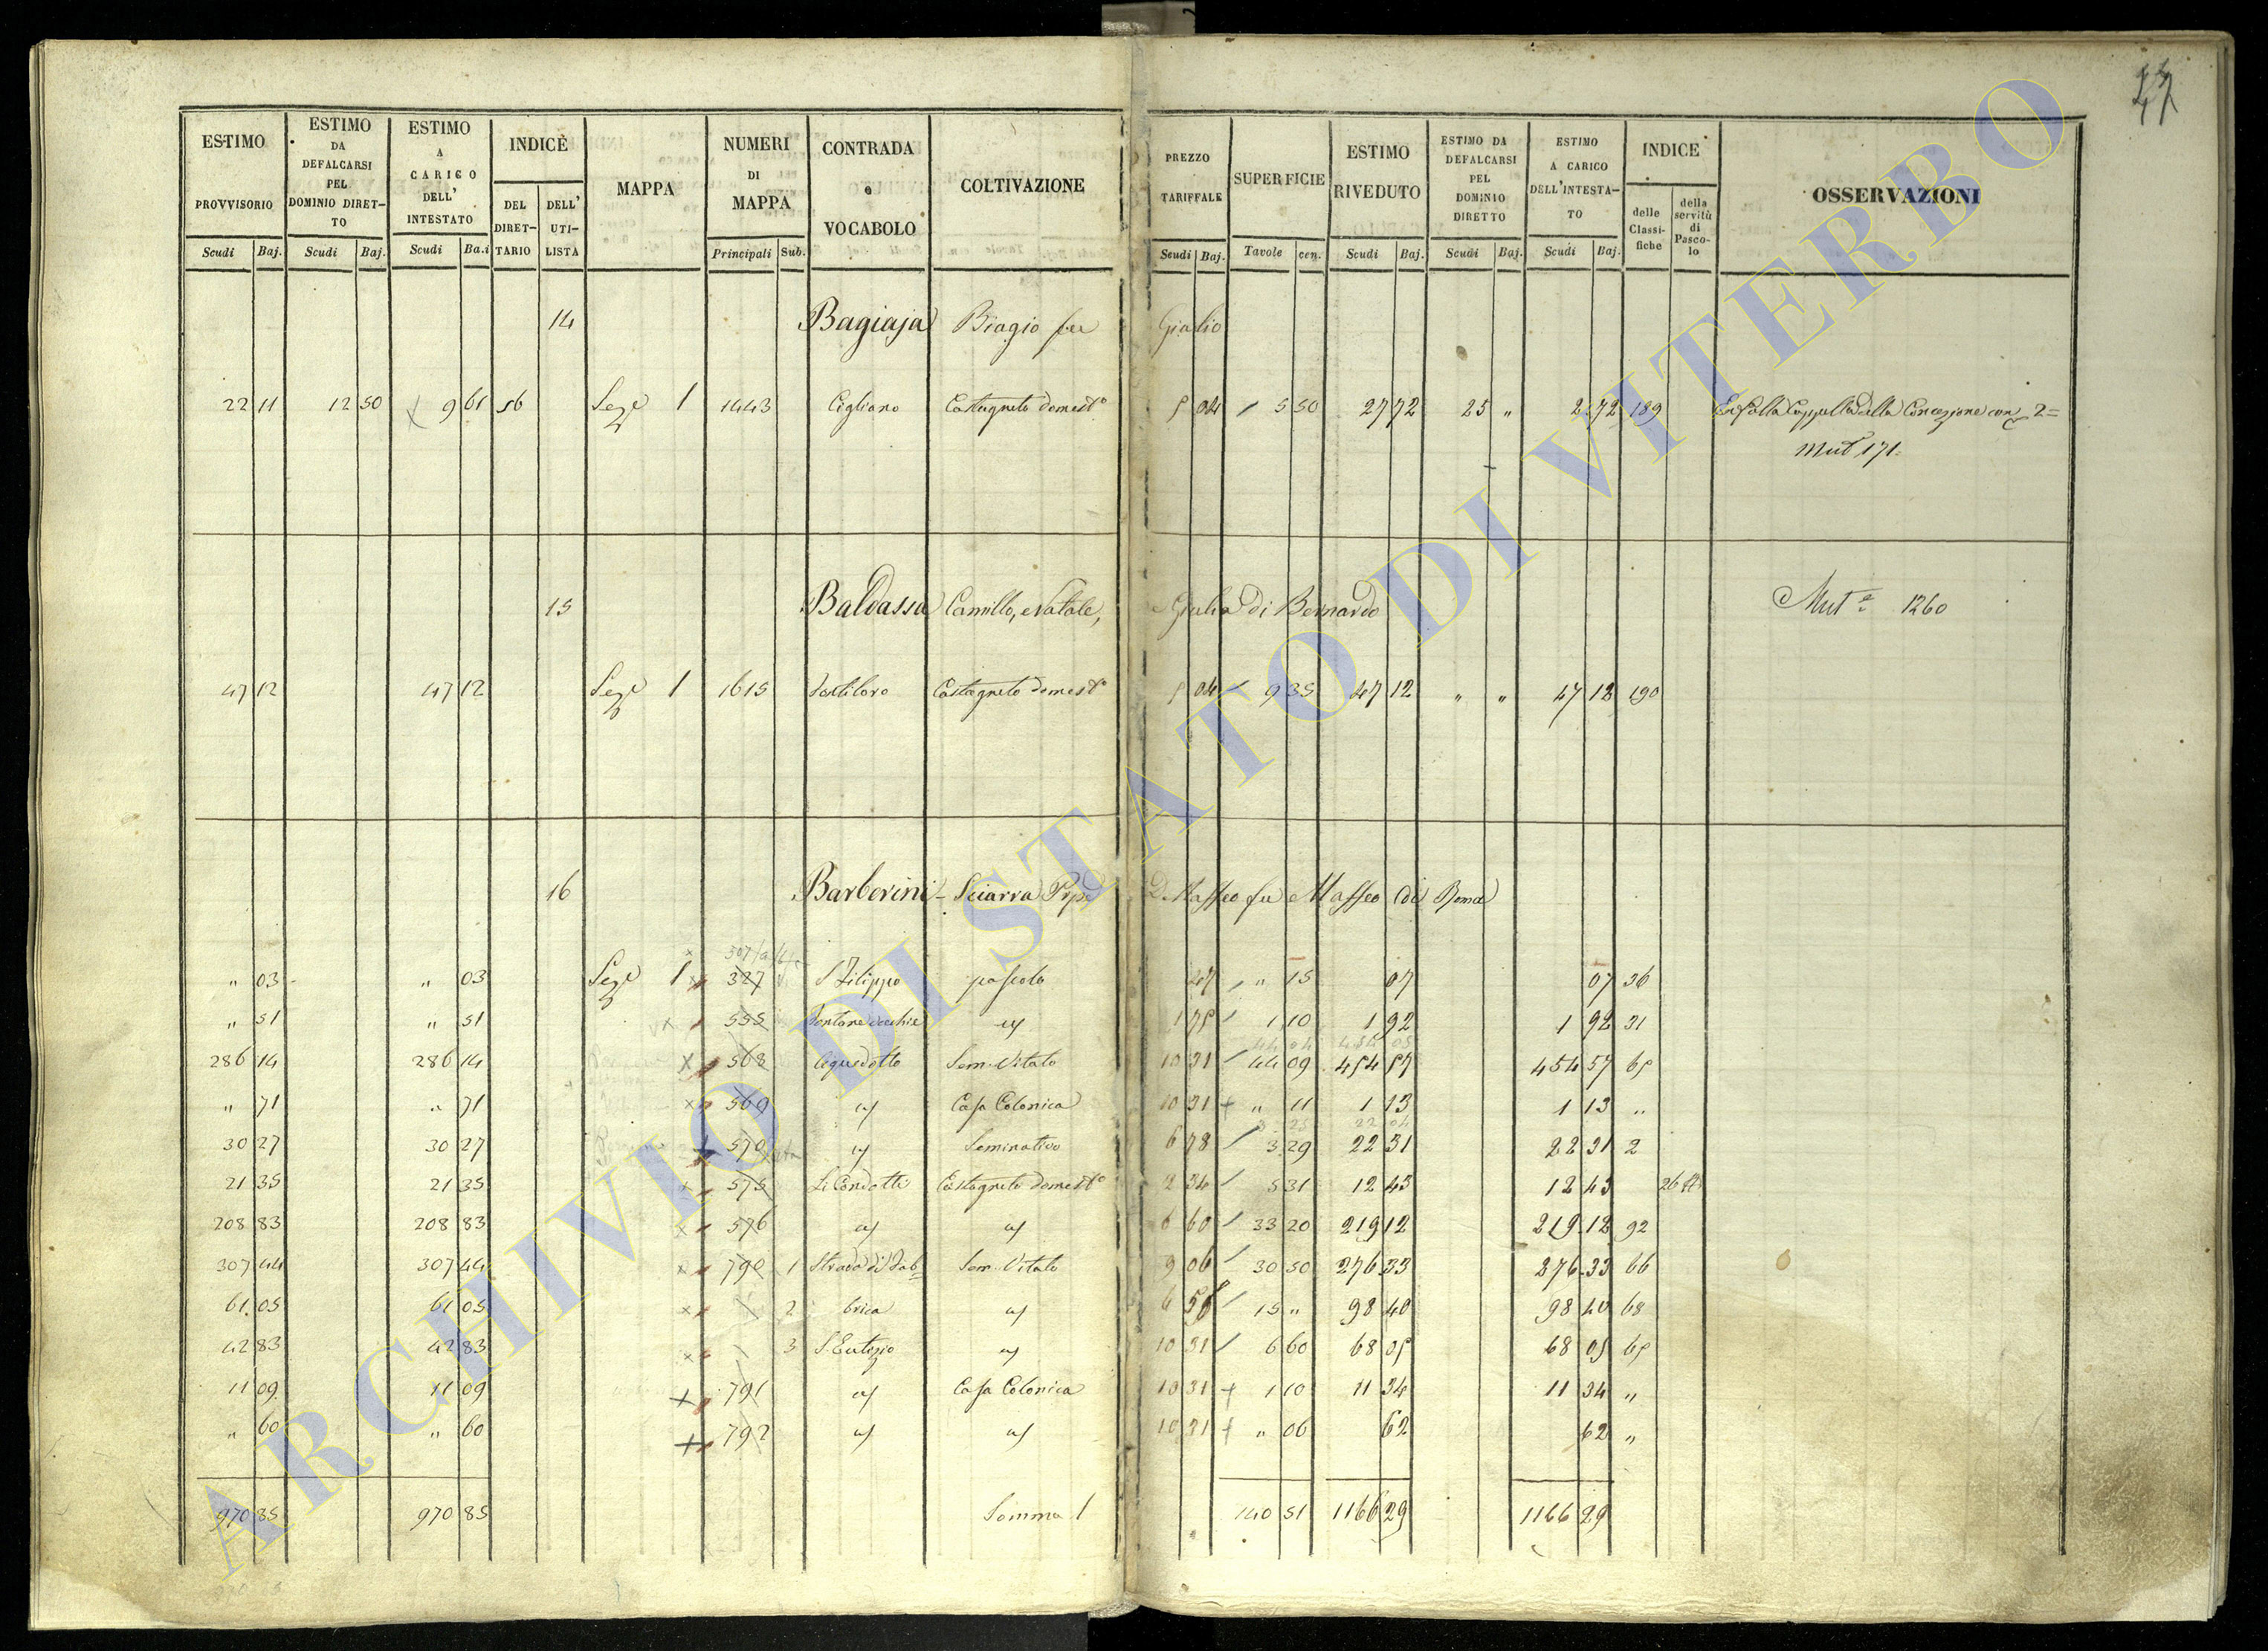 17
ESTIMO PROVVISORIO Scudi Baj. | ESTIMO DA DEFALCARSI PEL DOMINIO DIRET-TO Scudi Baj. | ESTIMO A CARICO DELL' INTESTATO Scudi Ba.i | INDICE DEL DIRET-TARIO | DELL' UTI-LISTA | MAPPA | NUMERI DI MAPPA Principali Sub. | CONTRADA o VOCABOLO | COLTIVAZIONE | PREZZO TARIFFALE Scudi Baj. | SUPERFICIE Tavole cen. | ESTIMO RIVEDUTO Scudi Baj. | ESTIMO DA DEFALCARSI PEL DOMINIO DIRETTO Scudi Baj. | ESTIMO A CARICO DELL'INTESTA-TO Scudi Baj. | INDICE delle Classi-fiche | della servitù di Pasco-lo | OSSERVAZIONI
14 Bagiaja Biagio fu Giulio
22 11 12 50 9 61 56 Sez.e 1 1443 Cigliano Castagneto domest.o 5 04 5 50 27 72 25 „ 2 72 189 Enf. alla Cappella della Concezione con 2=
Mut 171.
15 Baldassa Camillo, e Natale, Giulia di Bernardo Mut.e 1260
47 12 47 12 Sez.e 1 1615 Castagneto domest.o 5 04 9 35 47 12 „ „ 47 12 190
16 Barberini - Sciarra Prpe D. Maffeo fu Maffeo di Roma
„ 03 „ 03 Sez.e 1 327 S. Filippo pascolo 47 „ 15 07 07 36
„ 51 „ 51 555 Fontane vecchie id 1 75 1 10 1 92 1 92 31
286 14 286 14 568 Aquedotto Sem. Vitato 10 31 44 09 454 57 454 57 65
„ 71 „ 71 569 id Casa Colonica 10 31 „ 11 1 13 1 13 „
30 27 30 27 570 id Seminativo 6 78 3 29 22 31 22 31 2
21 35 21 35 575 Li Condotti Castagneto domest.o 2 34 5 31 12 43 12 43 26
208 83 208 83 576 id id 6 60 33 20 219 12 219 12 92
307 44 307 44 790 1 Strada di Fab= Sem. Vitato 9 06 30 50 276 33 276 33 66
61 05 61 05 2 brica id 6 56 15 „ 98 40 98 40 68
42 83 42 83 3 S. Eutizio id 10 31 6 60 68 05 68 05 65
11 09 11 09 791 id Casa Colonica 10 31 1 10 11 34 11 34 „
„ 60 „ 60 792 id id 10 31 „ 06 62 62 „
970 85 970 85 Somma 1 140 51 1166 29 1166 29
ARCHIVIO DI STATO DI VITERBO